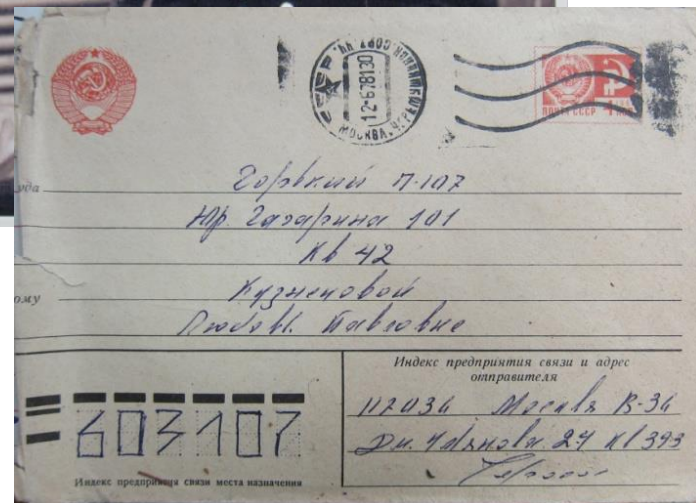 ПОЧТА СССР 4 коп
СССР
12-6781 30
МОСКВА,
Куда Горький П-107
Пр. Гагарина 101
Кв 42
Кому Кузнецовой
Любовь Павловне
Индекс предприятия связи и адрес
отправителя
117036 Москва В-36
Дм. Ульянова. 24 кв 393
603107
Индекс предприятия связи места назначения